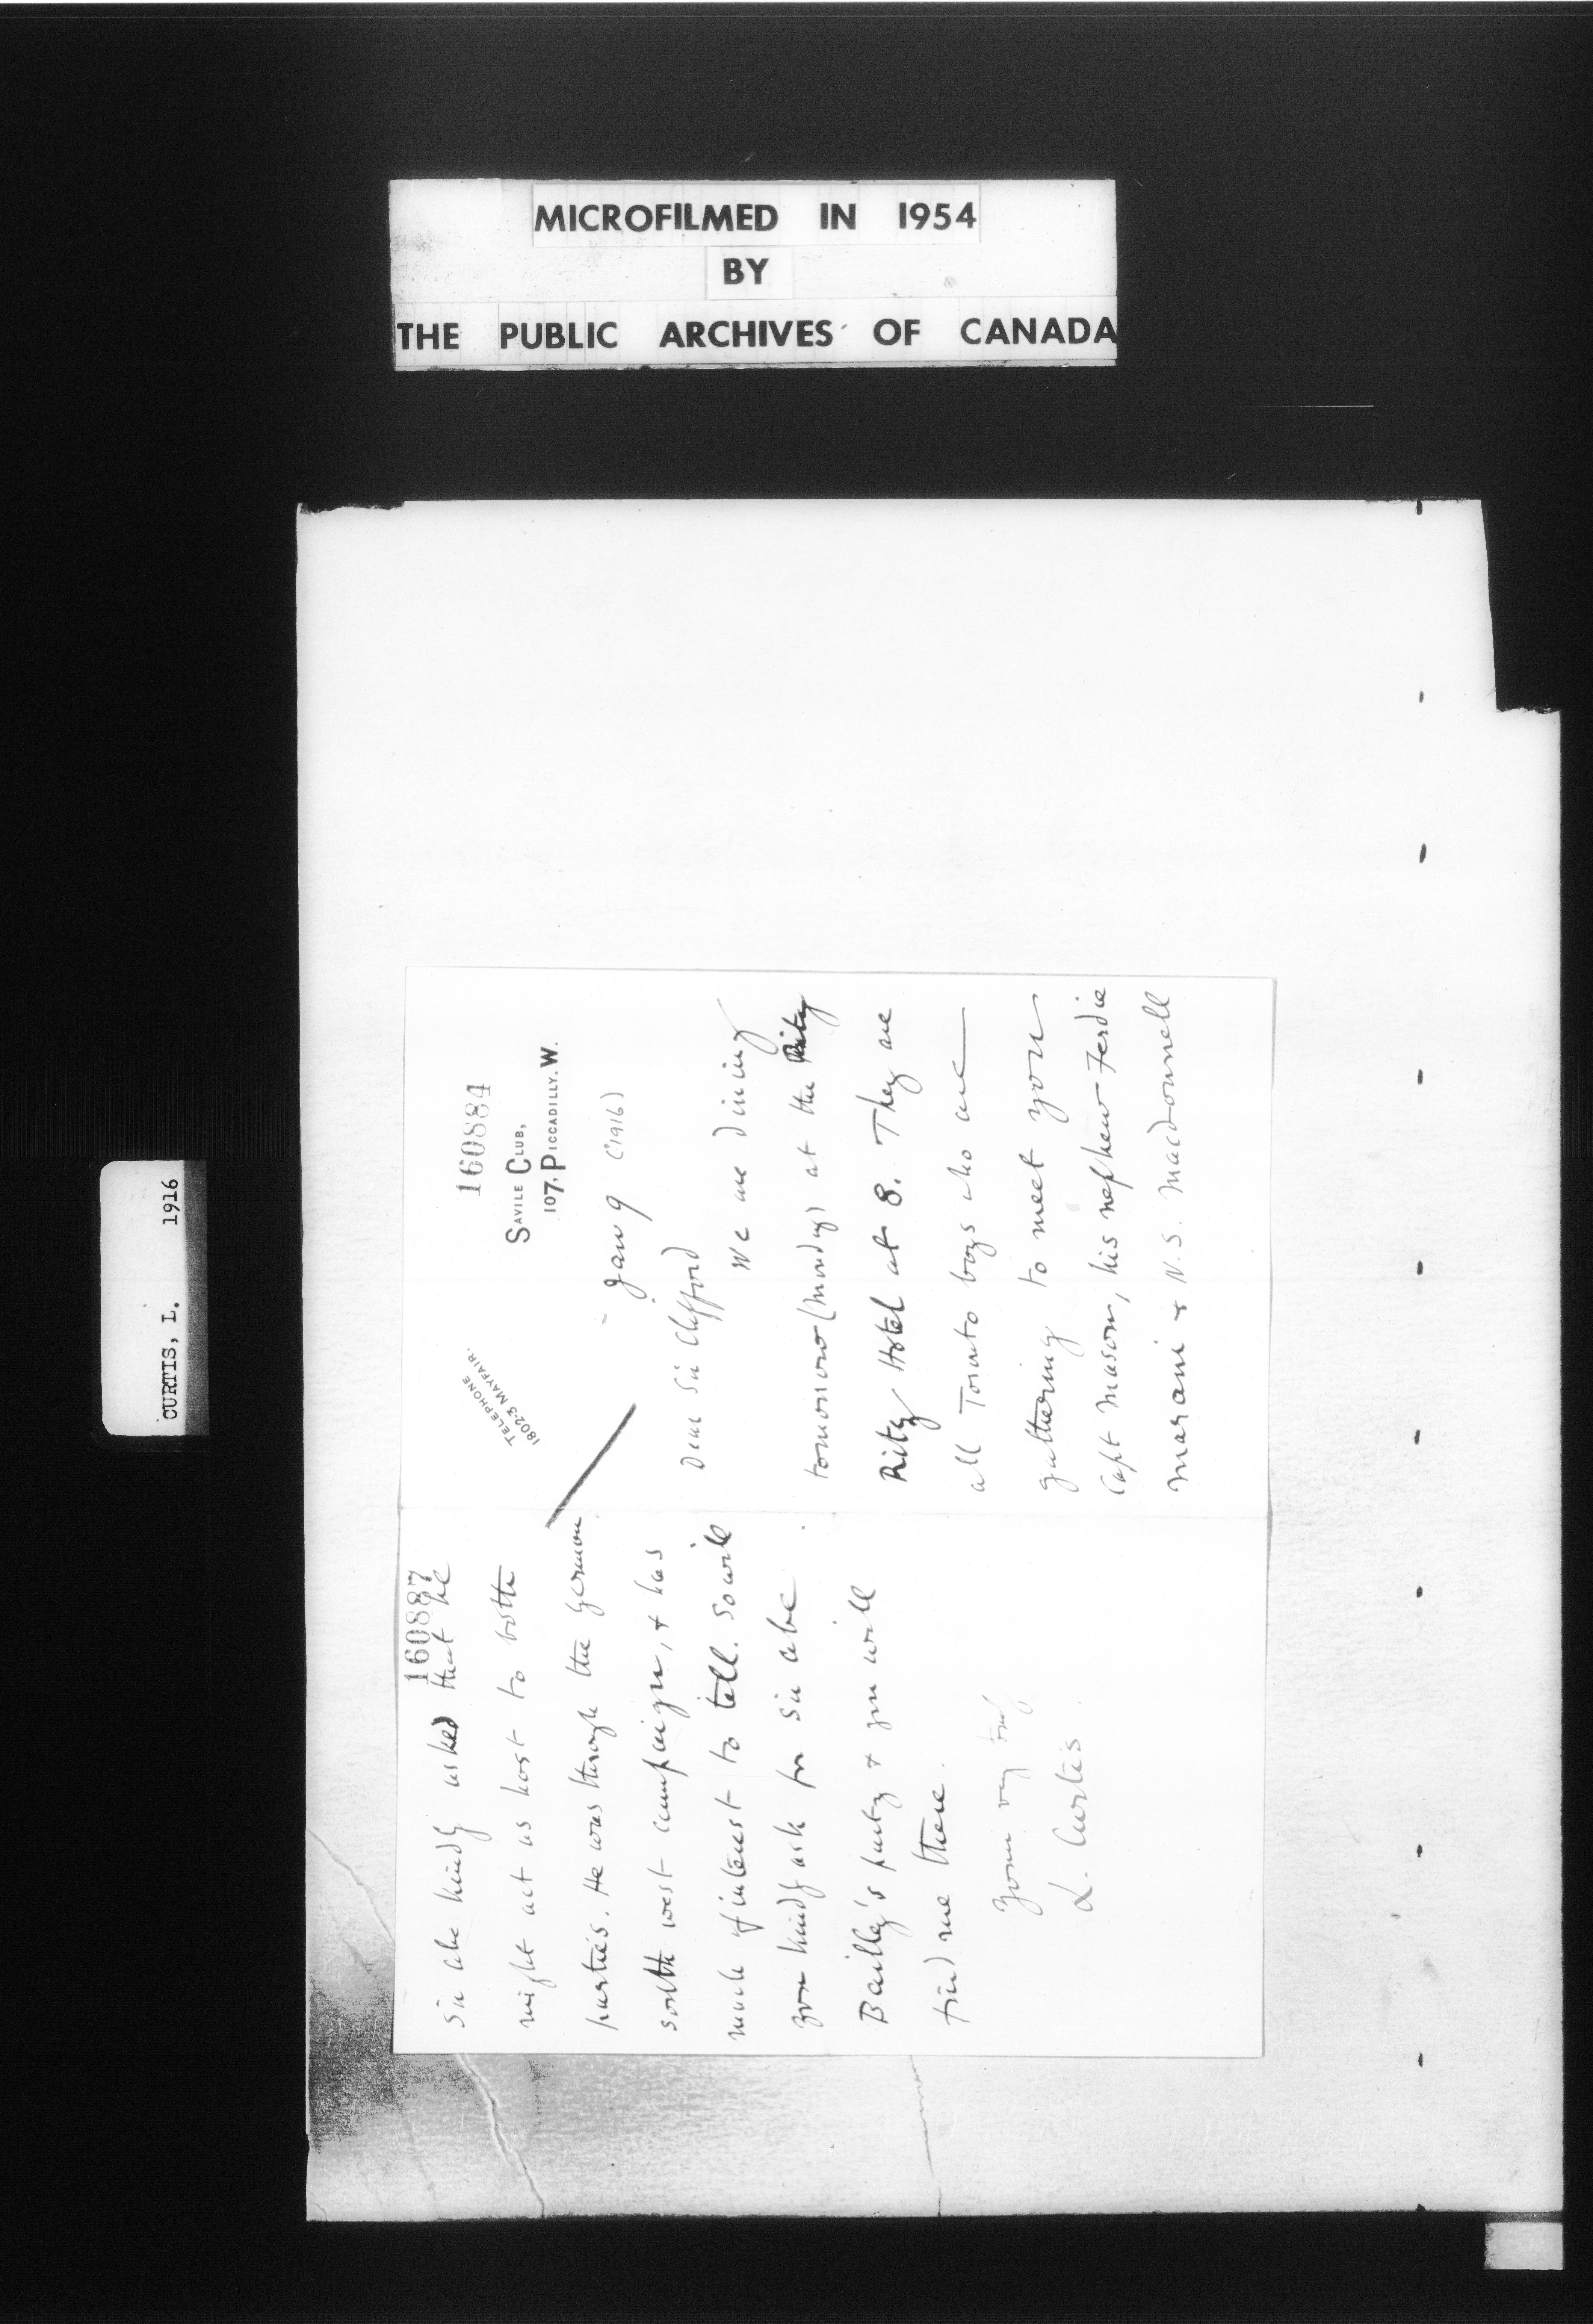 MICROFILMED IN 1954
BY
THE PUBLIC ARCHIVES OF CANADA
CURTIS, L. 1916
160884
TELEPHONE
1802-3 MAYFAIR.
SAVILE CLUB,
107, PICCADILLY. W.
Jan 9 (1916)
Dear Sir Clifford
We are dining
tomorrow (Monday) at the Ritz
Ritz Hotel at 8. They are
all Toronto boys who are
gathering to meet you
Capt Mason, his nephew Ferdie
Marani & N.S. Macdonnell
160887
Sir Abe kindly asked that he
might act as host to both
parties. He was through the German
South West campaign, & has
much of interest to tell. So will
you kindly ask for Sir Abe
Bailey's party & you will
find me there.
Yours very truly
L. Curtis